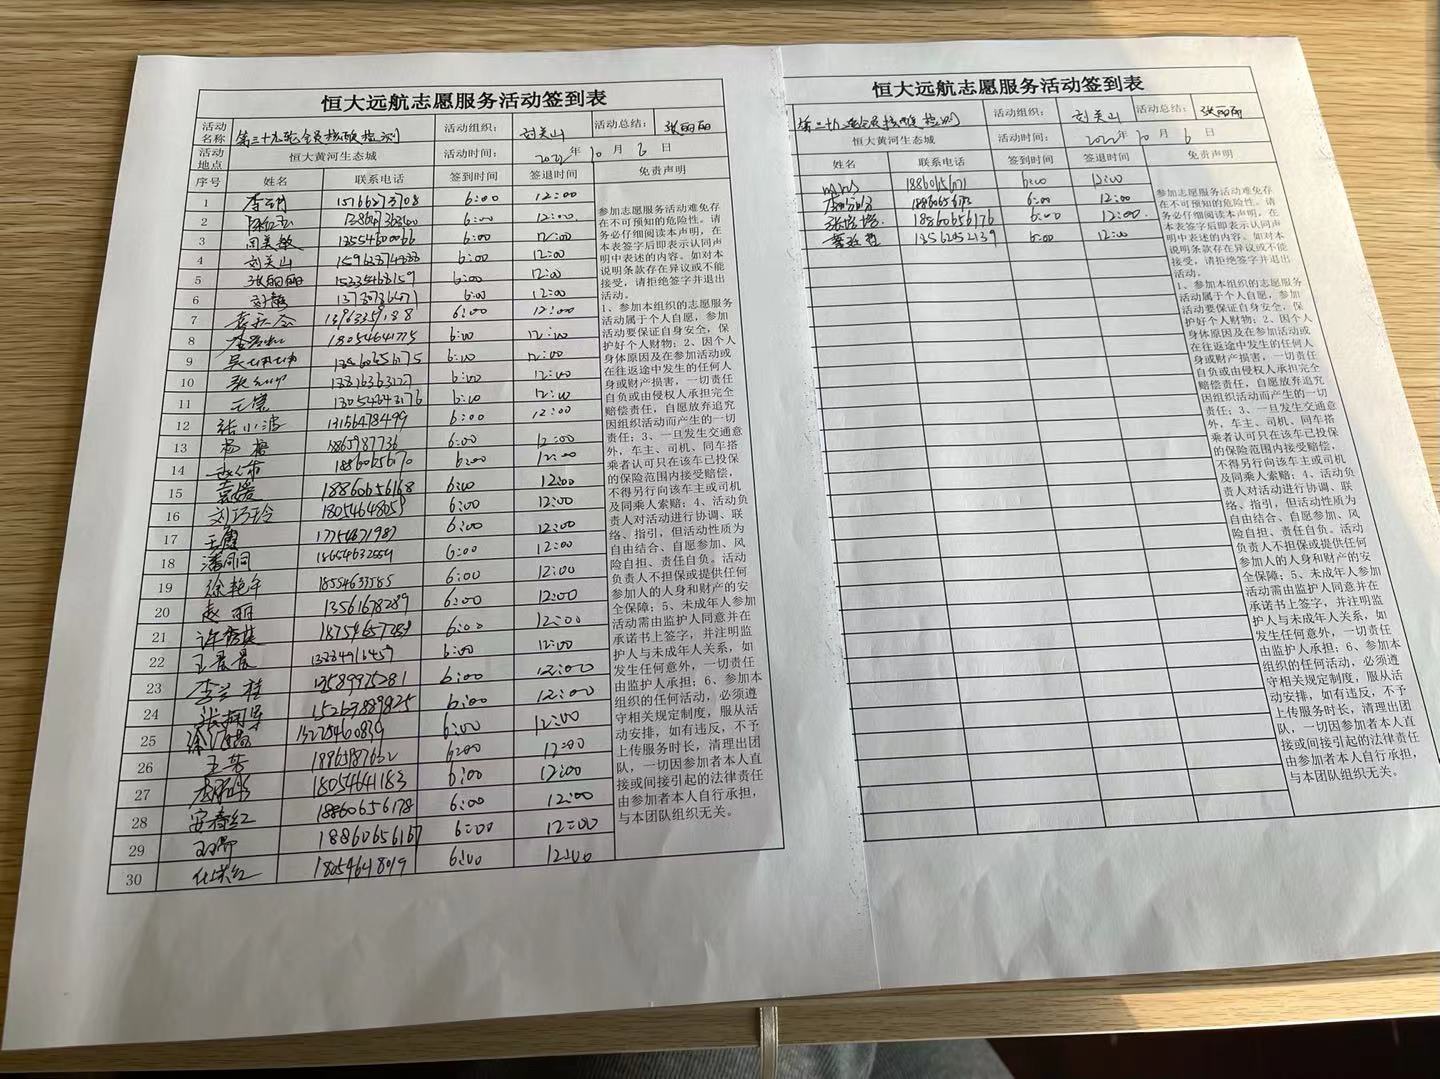 恒大远航志愿服务活动签到表
活动名称 第三十九轮全员核酸检测 活动组织： 刘美山 活动总结： 张丽丽
活动地点 恒大黄河生态城 活动时间： 2022年10月6日
序号 姓名 联系电话 签到时间 签退时间 免责声明
1 6:00 12:00
2 6:00 12:00
3 周美敏 13554600066 6:00 12:00
4 刘美山 6:00 12:00
5 张丽丽 15235463159 6:00 12:00
6 刘静 6:00 12:00
7 6:00 12:00
8 18054641775 6:00 12:00
9 6:00 12:00
10 6:00 12:00
11 13054643176 6:00 12:00
12 张小波 13156478499 6:00 12:00
13 杨梅 18659187736 6:00 12:00
14 18860656170 6:00 12:00
15 袁媛 18860656168 6:00 12:00
16 刘巧玲 18054648059 6:00 12:00
17 17754671987 6:00 12:00
18 潘同同 18654632554 6:00 12:00
19 徐艳华 18554633585 6:00 12:00
20 赵丽 13561678289 6:00 12:00
21 18754657288 6:00 12:00
22 王晨晨 6:00 12:00
23 李兰桂 13589975281 6:00 12:00
24 15263889825 6:00 12:00
25 13275460839 6:00 12:00
26 王芳 18865187632 6:00 12:00
27 18054641183 6:00 12:00
28 安春红 18860656178 6:00 12:00
29 18860656167 6:00 12:00
30 18054648019 6:00 12:00
参加志愿服务活动难免存
在不可预知的危险性。请
务必仔细阅读本声明，在
本表签字后即表示认同声
明中表述的内容。如对本
说明条款存在异议或不能
接受，请拒绝签字并退出
活动。
1、参加本组织的志愿服
务活动属于个人自愿，参加
活动要保证自身安全，保
护好个人财物；2、因个人
身体原因及在参加活动或
在往返途中发生的任何人
身或财产损害，一切责任
自负或由侵权人承担完全
赔偿责任，自愿放弃追究
因组织活动而产生的一切
责任；3、一旦发生交通意
外，车主、司机、同车搭
乘者认可只在该车已投保
的保险范围内接受赔偿，
不得另行向该车主或司机
及同乘人索赔；4、活动负
责人对活动进行协调、联
络、指引，但活动性质为
自由结合、自愿参加、风
险自担、责任自负。活动
负责人不担保或提供任何
参加人的人身和财产的安
全保障；5、未成年人参加
活动需由监护人同意并在
承诺书上签字，并注明监
护人与未成年人关系，如
发生任何意外，一切责任
由监护人承担；6、参加本
组织的任何活动，必须遵
守相关规定制度，服从活
动安排，如有违反，不予
上传服务时长，清理出团
队，一切因参加者本人直
接或间接引起的法律责任
由参加者本人自行承担，
与本团队组织无关。
恒大远航志愿服务活动签到表
第三十九轮全员核酸检测 活动组织： 刘美山 活动总结： 张丽丽
恒大黄河生态城 活动时间： 2022年10月6日
姓名 联系电话 签到时间 签退时间 免责声明
18860651171 6:00 12:00
6:00 12:00
张培培 18860656176 6:00 12:00
13562052139 6:00 12:00
参加志愿服务活动难免存
在不可预知的危险性。请
务必仔细阅读本声明，在
本表签字后即表示认同声
明中表述的内容。如对本
说明条款存在异议或不能
接受，请拒绝签字并退出
活动。
1、参加本组织的志愿服务
活动属于个人自愿，参加
活动要保证自身安全，保
护好个人财物；2、因个人
身体原因及在参加活动或
在往返途中发生的任何人
身或财产损害，一切责任
自负或由侵权人承担完全
赔偿责任，自愿放弃追究
因组织活动而产生的一切
责任；3、一旦发生交通意
外，车主、司机、同车搭
乘者认可只在该车已投保
的保险范围内接受赔偿，
不得另行向该车主或司机
及同乘人索赔；4、活动负
责人对活动进行协调、联
络、指引，但活动性质为
自由结合、自愿参加、风
险自担、责任自负。活动
负责人不担保或提供任何
参加人的人身和财产的安
全保障；5、未成年人参加
活动需由监护人同意并在
承诺书上签字，并注明监
护人与未成年人关系，如
发生任何意外，一切责任
由监护人承担；6、参加本
组织的任何活动，必须遵
守相关规定制度，服从活
动安排，如有违反，不予
上传服务时长，清理出团
队，一切因参加者本人直
接或间接引起的法律责任
由参加者本人自行承担，
与本团队组织无关。